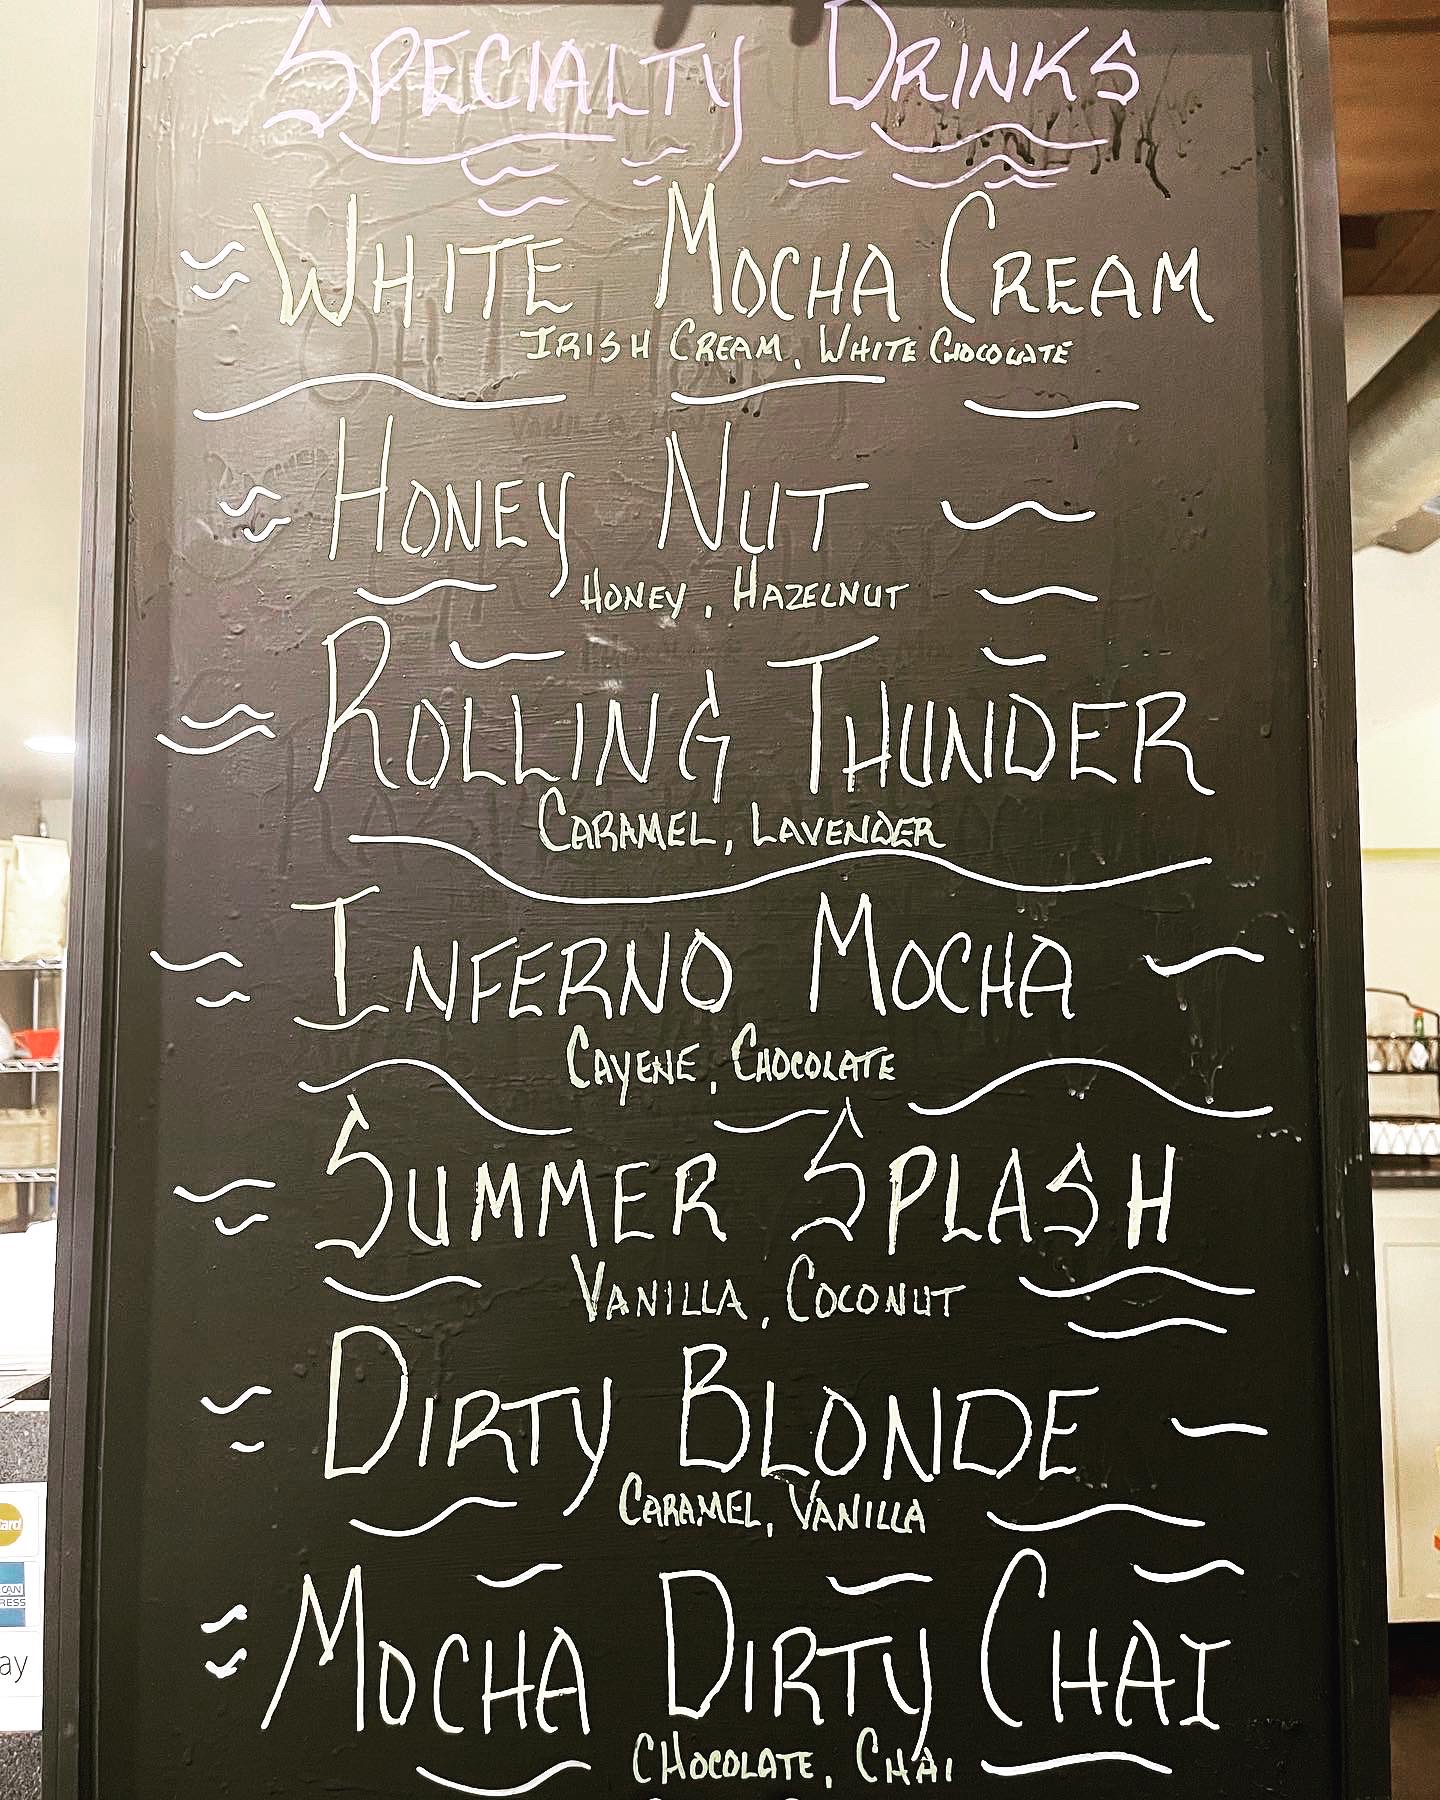 SPECIALTY DRINKS
WHITE MOCHA CREAM
IRISH CREAM, WHITE CHOCOLATE
HONEY NUT
HONEY, HAZELNUT
ROLLING THUNDER
CARAMEL, LAVENDER
INFERNO MOCHA
CAYENE, CHOCOLATE
SUMMER SPLASH
VANILLA, COCONUT
DIRTY BLONDE
CARAMEL, VANILLA
MOCHA DIRTY CHAI
CHOCOLATE, CHAI
ard
CAN
RESS
ay